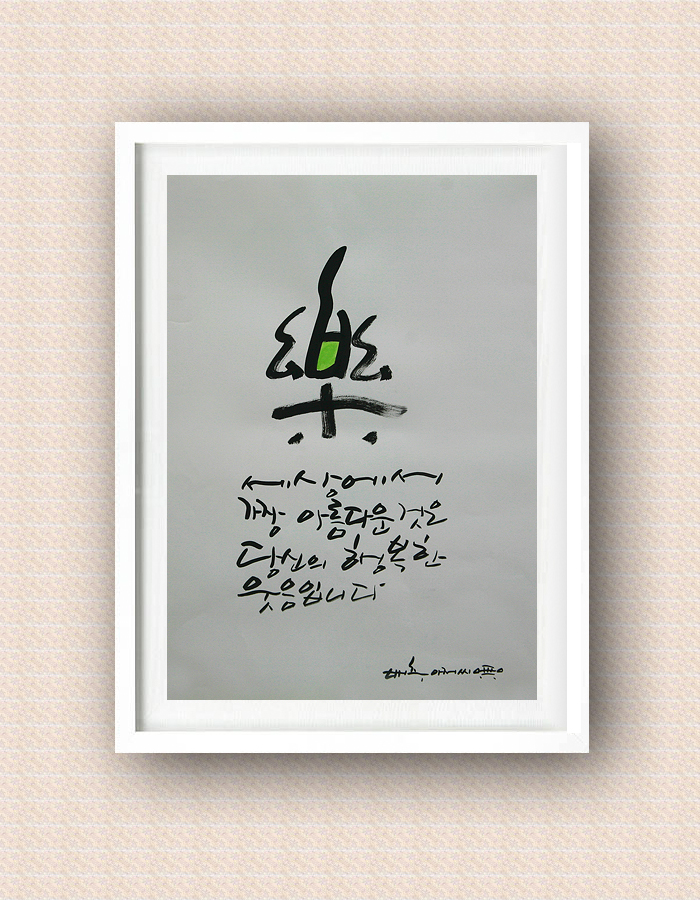 樂
세상에서
가장 아름다운 것은
당신의 행복한
웃음입니다